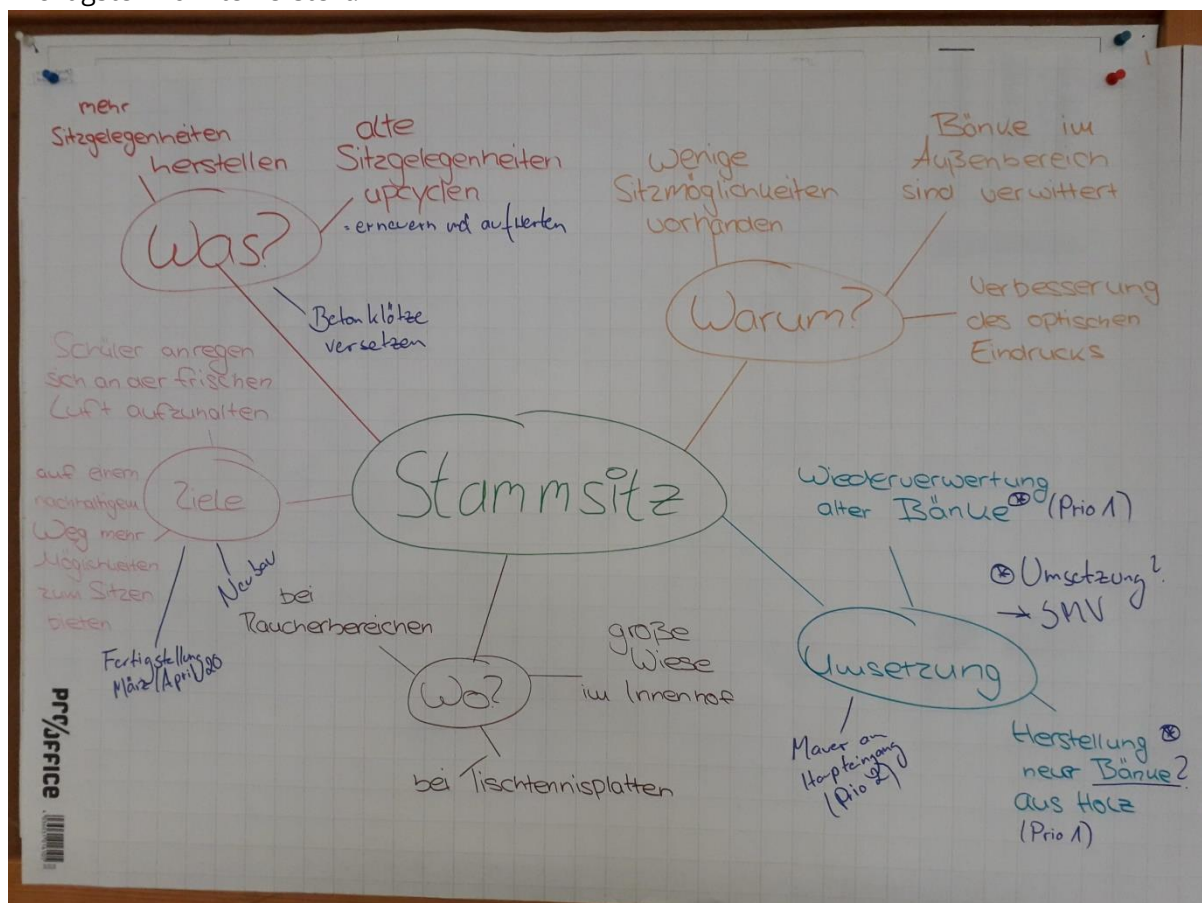 mehr
Sitzgelegenheiten
herstellen
alte
Sitzgelegenheiten
upcyclen
- erneuern und aufwerten
Was?
Betonklötze
versetzen
wenige
Sitzmöglichkeiten
vorhanden
Bänke im
Außenbereich
sind verwittert
Warum?
Verbesserung
des optischen
Eindrucks
Schüler anregen
sich an der frischen
Luft aufzuhalten
Ziele
auf einem
nachhaltigem
Weg mehr
Möglichkeiten
zum Sitzen
bieten
Neubau
Fertigstellung
März (April) 20
Stammsitz
bei
Raucherbereichen
Wo?
große
Wiese
im Innenhof
bei Tischtennisplatten
Wiederverwertung
alter Bänke ⊛ (Prio 1)
⊛ Umsetzung?
→ SMV
Umsetzung
Mauer am
Haupteingang
(Prio 2)
Herstellung ⊛
neuer Bänke?
aus Holz
(Prio 1)
pro/OFFICE